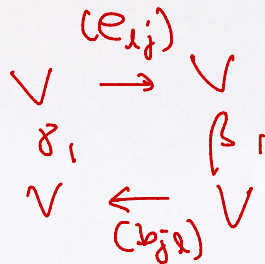 (e_{ij})
V → V
γ₁ β₁
V ← V
(b_{jl})